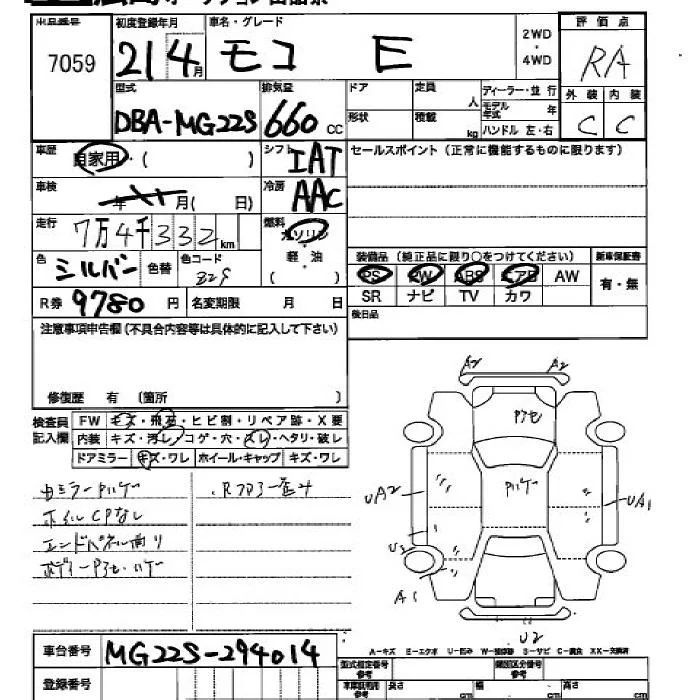 出品番号 初度登録年月 車名・グレード 2WD・4WD 評価点
7059 21 4月 モコ E RA
型式 排気量 ドア 定員 人 ディーラー・並行 外装 内装
DBA-MG22S 660 cc 形状 積載 kg モデル年式 年 ハンドル 左・右 C C
車歴 自家用・( ) シフト IAT セールスポイント(正常に機能するものに限ります)
車検 年 月( 日) 冷房 AAC
走行 7万4千332km 燃料 ガソリン・軽油 ( )
装備品(純正品に限り○をつけてください) 新車保証書
色 シルバー 色替 色コード PS PW ABS エアB AW 有・無
R券 9780円 名変期限 月 日 SR ナビ TV カワ
注意事項申告欄(不具合内容等は具体的に記入して下さい) 後日品
修復歴 有 (箇所 )
検査員記入欄 FW キズ・飛石・ヒビ割・リペア跡・X要
内装 キズ・汚レ・コゲ・穴・スレ・ヘタリ・破レ
ドアミラー キズ・ワレ ホイール・キャップ キズ・ワレ
A2 A2
Pアセ
Pハゲ
UA2 UA1
A1
U2
ホイルCPなし
車台番号 MG22S-294014
A-キズ E-エクボ U-凹み W-補修跡 S-サビ C-腐食 XX-交換済
登録番号 型式指定番号 参考 類別区分番号 参考
車庫証明用 参考 長さ cm 幅 cm 高さ cm